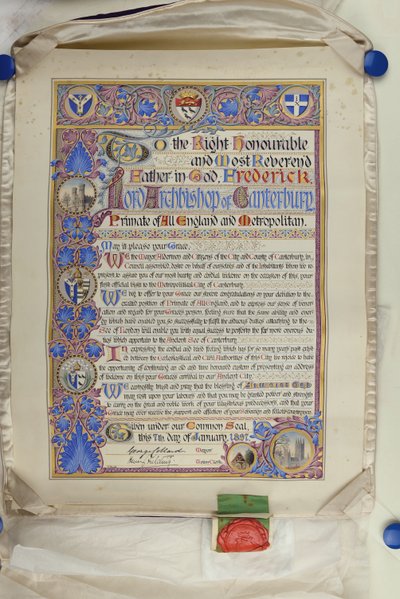 To the Right Honourable
and Most Reverend
Father in God, Frederick
Lord Archbishop of Canterbury,
Primate of All England and Metropolitan.
May it please your Grace,
We the Mayor Aldermen and Citizens of the City and County of Canterbury, in
Council assembled desire on behalf of ourselves and of the Inhabitants
present to assure you of our most hearty and cordial welcome on the occasion of this your
first official visit to the Metropolitical City of Canterbury.
We beg to offer to your Grace our sincere congratulations on your elevation to the
exalted position of Primate of All England and to express our sense of
and regard for your Grace's person, feeling sure that the same ability and energy
by which have enabled you so successfully to fulfil the arduous duties attaching to the
See of London will enable you with equal success to perform the far more onerous
duties which appertain to the Ancient See of Canterbury.
In expressing the cordial and kind feeling which has for so many years past
between the Ecclesiastical and Civil Authorities of this City we rejoice to have
the opportunity of continuing an old and time honored custom of presenting an address
of welcome on this your Graces arrival in our Ancient City.
We earnestly trust and pray that the blessing of Almighty God
may rest upon your labours and that you may be granted power and strength
to carry on the great and noble work of your illustrious predecessors and that your
Grace may ever receive the support and affection of your clergy and fellow countrymen.
Given under our Common Seal,
this 7th day of January, 1897.
George Collard Mayor
Henry Fielding Town Clerk